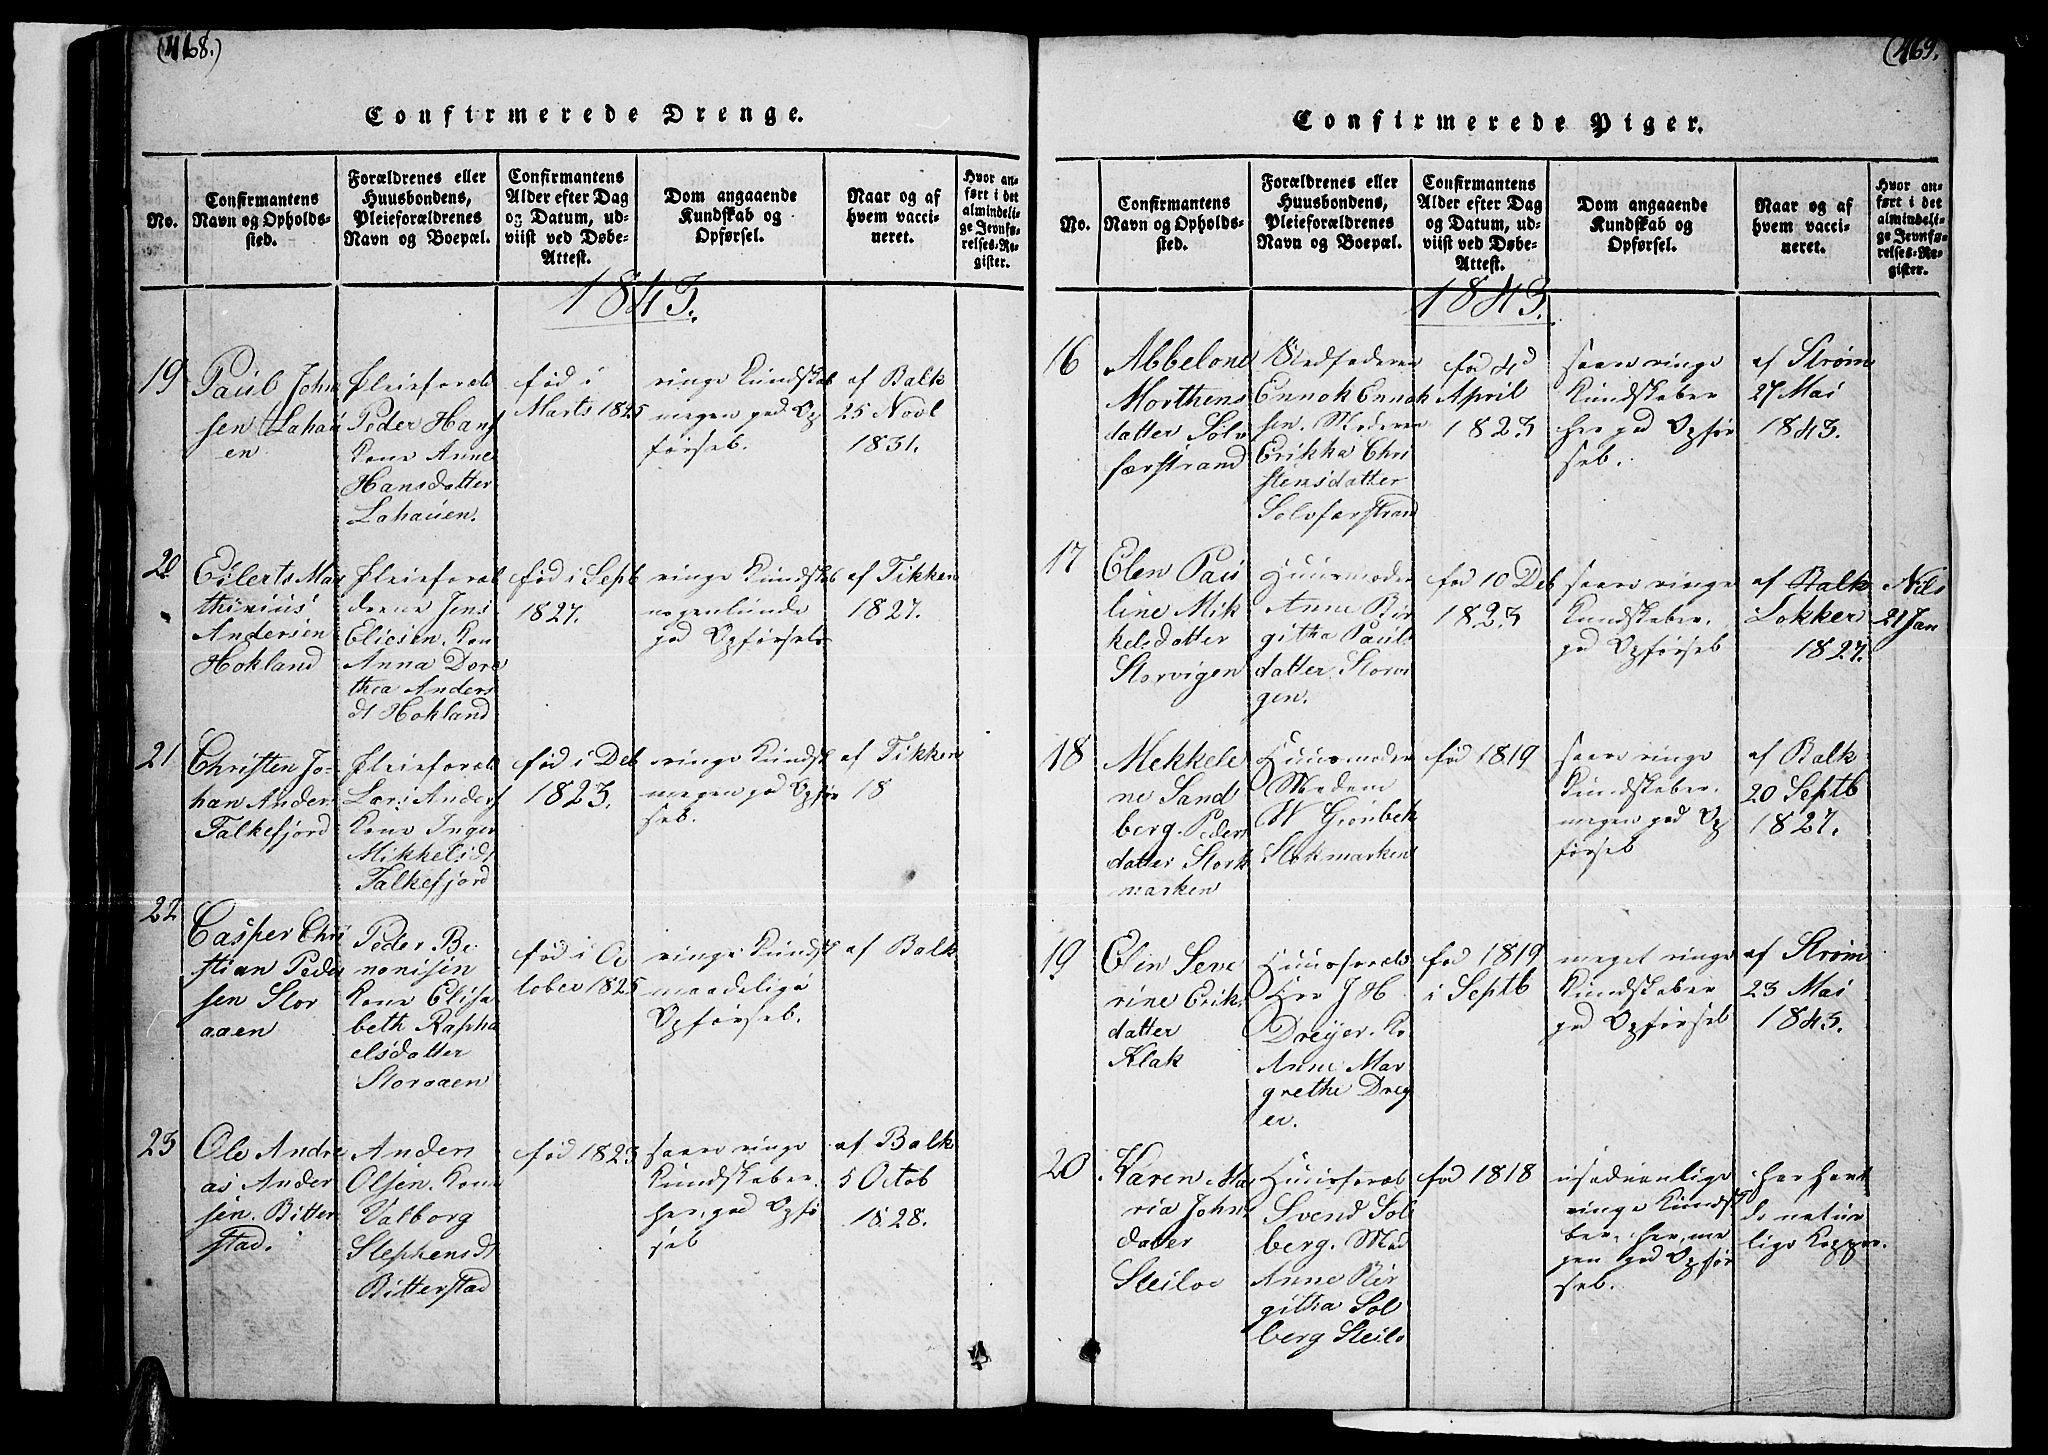 (468.)
Confirmerede Drenge.
No.
Confirmantens
Navn og Opholds-
sted.
Forældrenes eller
Huusbondens,
Pleieforældrenes
Navn og Boepæl.
Confirmantens
Alder efter Dag
og Datum, ud-
viist ved Døbe-
Attest.
Dom angaaende
Kundskab og
Opførsel.
Naar og af
hvem vacci-
neret.
Hvor an-
ført i det
almindeli-
ge Jevnfø-
relses-Re-
gister.
1843.
19
Paul John
sen Lahau
en
Pleieforæld
Peder Hans
Kone Anne
Hansdatter
Lahauen.
fød i
Marts 1825
ringe Kundskab
megen god Op
førsel.
af Balk
25 Novb
1831.
20
Eilerts Mar
thinius
Andersen
Hokland
Pleieforæl
drene Jens
Eliesen. Kon
Anna Doro
thea Anders
dt Hokland
fød i Septb
1827.
ringe Kundskb
nogenlunde
god Opførsels
af Tikken
1827.
21
Christen Jo-
han Anders
Falkefjord
Pleieforæl
Lars Anders
Kone Inger
Mikkelsdt
Falkefjord
fød i Deb
1823.
ringe Kundsk
megen god Opfør
sel.
af Tikken
18
22
Casper Chri
stian Peder
sen Stor
aaen
Peder Be
nonisen
Kone Elisa
beth Rapha
elsdatter
Storaaen
fød i Oc
tober 1825
ringe Kundsk
maadelige
Opførsel.
af Balk
23
Ole Andre
as Ander
sen. Bitter
stad.
Anders
Olsen. Kone
Valborg
Stephensdt
Bitterstad
fød 1823
saare ringe
Kundskaber.
her, god Opfø
sel
af Balk
5 Octob
1828.
(469.
Confirmerede Piger.
No.
Confirmantens
Navn og Opholds-
sted.
Forældrenes eller
Huusbondens,
Pleieforældrenes
Navn og Boepæl.
Confirmantens
Alder efter Dag
og Datum, ud-
viist ved Døbe-
Attest.
Dom angaaende
Kundskab og
Opførsel.
Naar og af
hvem vacci-
neret.
Hvor an-
ført i det
almindeli-
ge Jevnfø-
relses-Re-
gister.
1843.
16
Abbelone
Morthens
datter Solv
færstrand
Stedfaderen
Ennok Ennok
sen. Moderen
Erikka Chri
stensdatter
Solvfærstrand
fød 4d
April
1823
saare ringe
Kundskaber
her god Opfør
sel.
af Strøm
27 Mai
1843.
17
Elen Pau
line Mik
kelsdatter
Storvigen
Huusmoder
Anne Bir
githa Pauls
datter Storvi
gen.
fød 10 Deb
1823
saare ringe
Kundskaber.
god Opførsel
af Balk
Lokker
1827.
Nils
21 Jan
18
Mekkele
ne Sand
berg. Peders
datter Stork
marken
Huusmoder
Madem
W Grønbek
Stokmarken
fød 1819
saare ringe
Kundskaber.
megen god Op
førsel
af Balk
20 Septb
1827.
19
Elen Seve
rine Eriks
datter
Klak
Huusforæld
Hrr J H
Dreyer. Ko
Anne Mar
grethe Drey
er.
fød 1819
i Septb
meget ringe
Kundskaber
god Opførsel
af Strøm
23 Mai
1843.
20
Karen Ma
ria John
datter
Steiloe
Huusforæl
Svend Sol
berg. Mad
Anne Bir
githa Sol
berg Steilo
fød 1818
usædvanlige
ringe Kundsk
ber. her, me
gen god Opfør
sel.
har havt
de natur
lige Kopper.